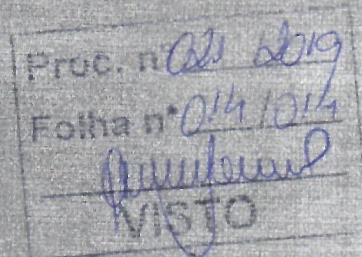 Proc. nº 021 / 2019
Folha nº 014 / 014
VISTO